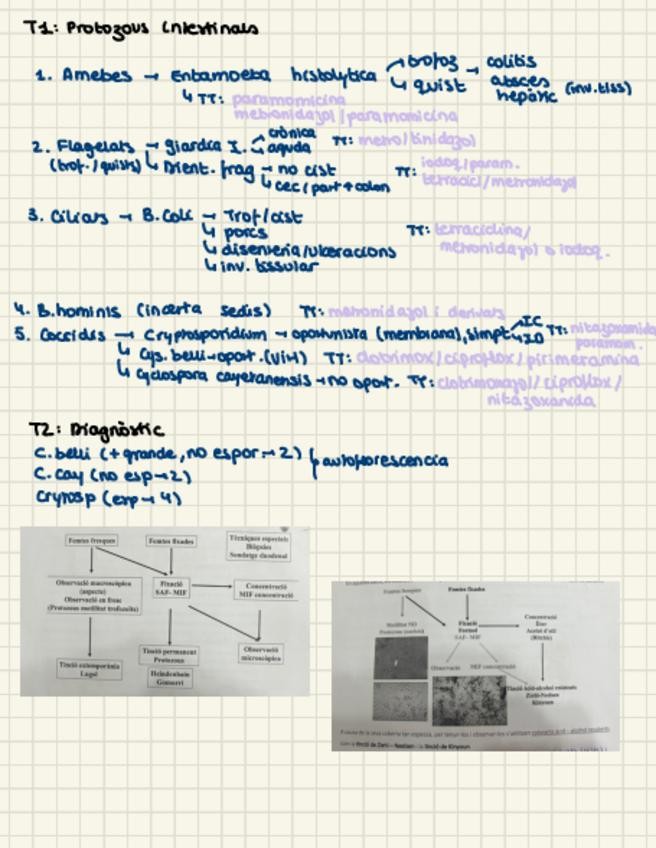 T1: Protozous intestinals
1. Amebes → Entamoeba histolytica → trofoz → colitis
↳ quist abscés hepàtic (inv. tiss)
↳ TT: paramomicina
metronidazol / paramomicina
2. Flagelats → giardia I. → crònica TT: metro/tinidazol
aguda
(trof. / quists) ↳ Dient. frag → no cist TT: iodoq/param.
↳ cec (part + colon tetracicl/metronidazol
3. Ciliars → B. Coli → Trof/cist
↳ porcs TT: tetraciclina/
↳ disenteria/ulceracions metronidazol o iodoq.
↳ inv. tissular
4. B. hominis (incerta sedis) TT: metronidazol i derivats
5. Coccidis → Cryptosporidium → oportunista (membrana), simpt IC TT: nitazoxanida
ID paramom.
↳ Cys. belli → oport. (VIH) TT: clotrimox/ciproflox/pirimetamina
↳ Cyclospora cayetanensis → no oport. TT: clotrimoxazol/ciproflox/
nitazoxanida
T2: Diagnòstic
C. belli (+ grande, no espor → 2) autoflorescencia
C. cay (no esp → 2)
Cryposp (esp → 4)
Femtes fresques
Femtes fixades
Tècniques especials
Biòpsies
Sondatge duodenal
Observació macroscòpica
(aspecte)
Observació en fresc
(Protozous motilitat trofozoïts)
Fixació
SAF- MIF
Concentració
MIF concentració
Tinció extemporània
Lugol
Tinció permanent
Protozous
Heindenhain
Gomorri
Observació
microscòpica
Femtes fresques
Femtes fixades
Motilitat NO
Fixació
Formol
SAF- MIF
Concentració
Èter
Acetat d'etil
(Ritchie)
Observació
MIF concentració
Tinció Àcid-alcohol resistents
Ziehl-Neelsen
Kinyoun